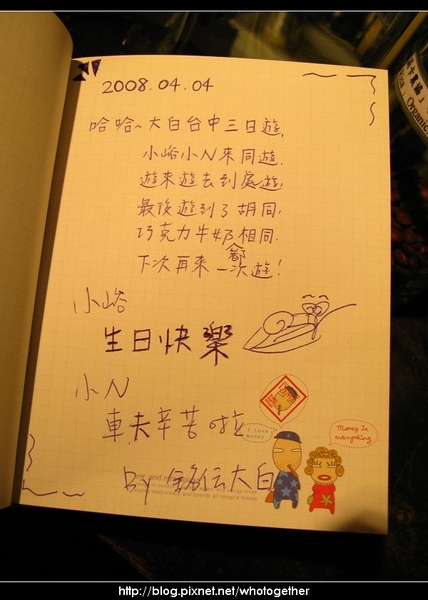 2008.04.04
哈哈~大白台中三日遊,
小峪小N來同遊.
遊來遊去到處遊,
最後遊到了胡同,
巧克力牛奶相同.
下次再來一次遊!
都
小峪
生日快樂
小N
車夫辛苦啦
I love money
Money is everything
By 銘伝大白
http://blog.pixnet.net/whotogether